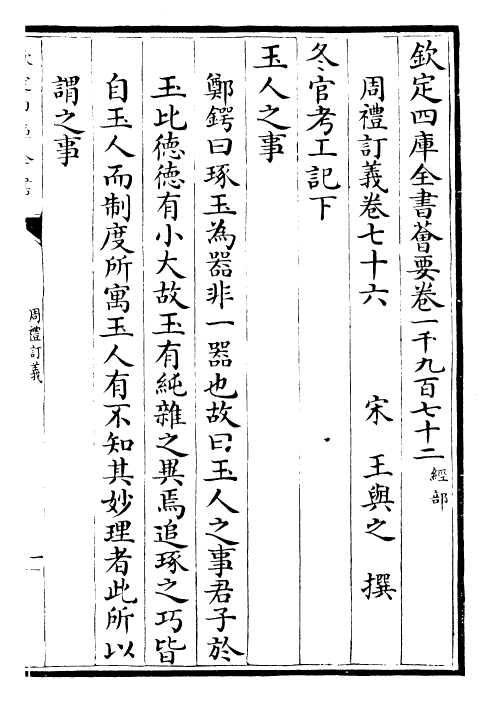 欽定四庫全書薈要卷一千九百七十二 經部
周禮訂義卷七十六 宋 王與之 撰
冬官考工記下
玉人之事
鄭鍔曰琢玉為器非一器也故曰玉人之事君子於
玉比徳徳有小大故玉有純雜之異焉追琢之巧皆
自玉人而制度所寓玉人有不知其妙理者此所以
謂之事
周禮訂義
一